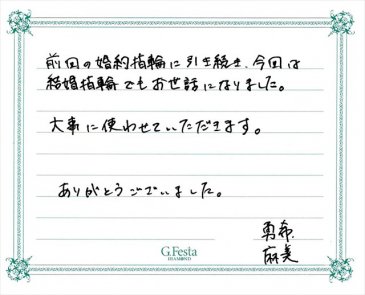 前回の婚約指輪に引き続き、今回は
結婚指輪でもお世話になりました。
大事に使わせていただきます。
ありがとうございました。
勇希
麻美
G.Festa
DIAMOND